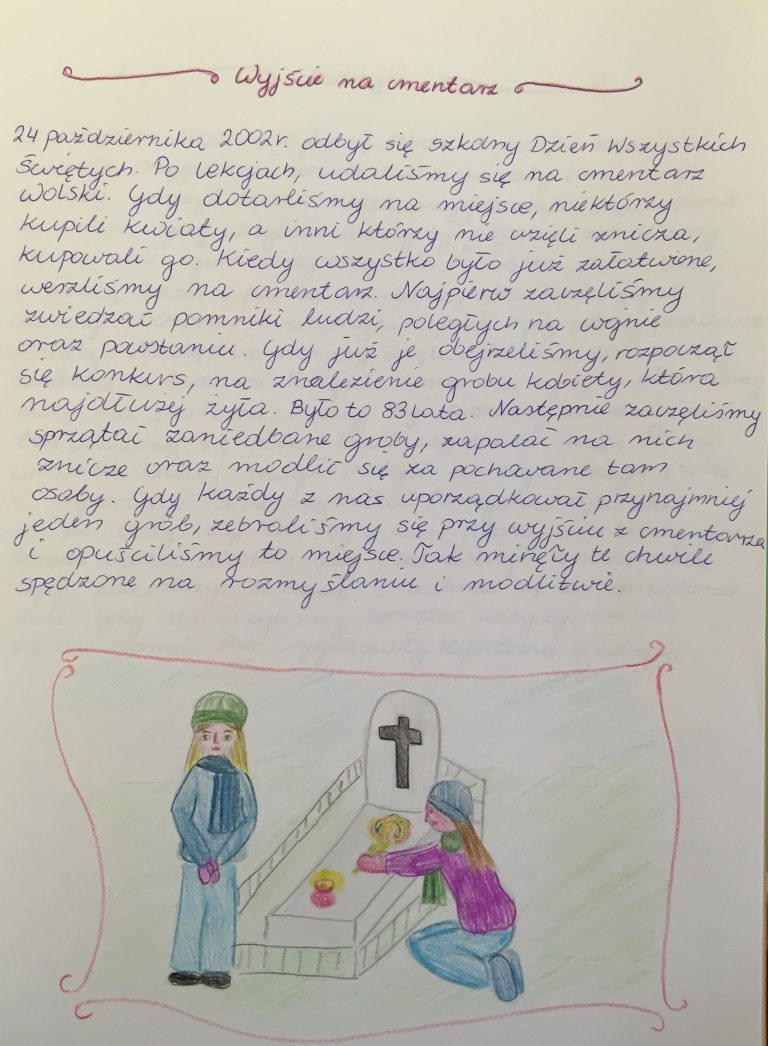 Wyjście na cmentarz
24 października 2002r. odbył się szkolny Dzień Wszystkich
Świętych. Po lekcjach, udaliśmy się na cmentarz
Wolski. Gdy dotarliśmy na miejsce, niektórzy
kupili kwiaty, a inni którzy nie wzięli znicza,
kupowali go. Kiedy wszystko było już załatwione,
weszliśmy na cmentarz. Najpierw zaczęliśmy
zwiedzać pomniki ludzi, poległych na wojnie
oraz powstaniu. Gdy już je obejrzeliśmy, rozpoczął
się konkurs, na znalezienie grobu kobiety, która
najdłużej żyła. Było to 83 lata. Następnie zaczęliśmy
sprzątać zaniedbane groby, zapalać na nich
znicze oraz modlić się za pochowane tam
osoby. Gdy każdy z nas uporządkował przynajmniej
jeden grób, zebraliśmy się przy wyjściu z cmentarza
i opuściliśmy to miejsce. Tak minęły te chwile
spędzone na rozmyślaniu i modlitwie.